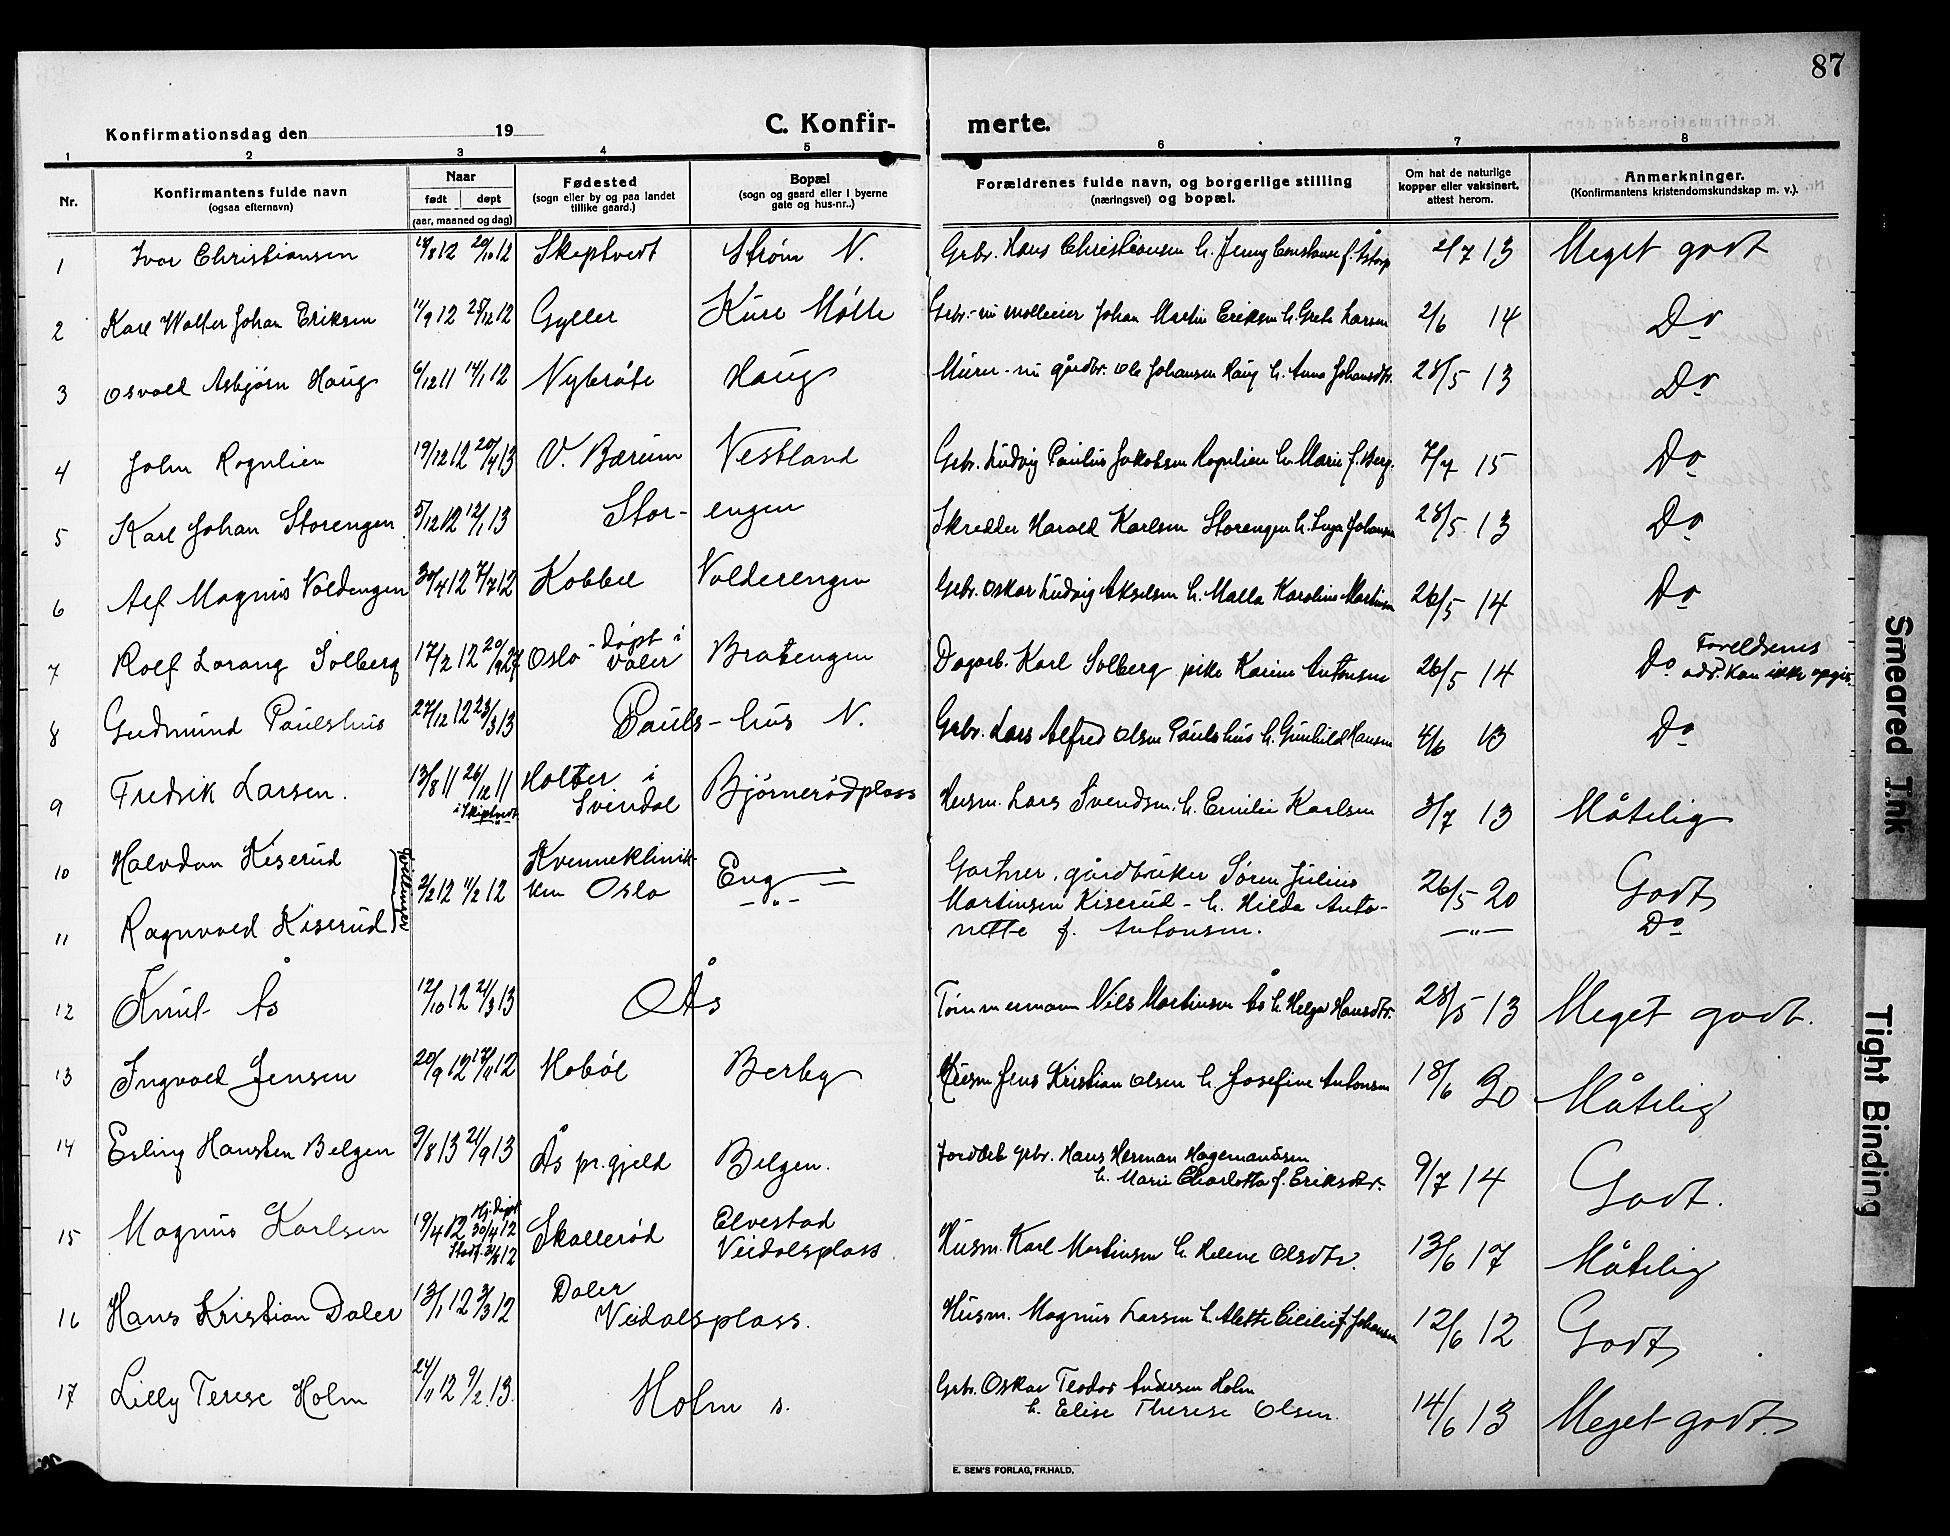 87
Konfirmationsdag den 19
C. Konfir- merte.
1 2 3 4 5 6 7 8
Nr.
Konfirmantens fulde navn
(ogsaa efternavn)
Naar
født døpt
(aar, maaned og dag)
Fødested
(sogn eller by og paa landet
tillike gaard.)
Bopæl
(sogn og gaard eller i byerne
gate og hus-nr..)
Forældrenes fulde navn, og borgerlige stilling
(næringsvei) og bopæl.
Om hat de naturlige
kopper eller vaksinert,
attest herom.
Anmerkninger.
(Konfirmantens kristendomskundskap m. v.).
1 Ivar Christiansen 18/8 12 20/10 12 Skiptvedt Strøm N. Grbr. Hans Christiansen h. Jenny Constanse f. 2/7 13 Meget godt
2 Karl Walter Johan Eriksen 11/9 12 25/12 12 Gyller Kure Mølle Grbr. nu mølleier Johan Martin Eriksen h. Grete Larsen 2/6 14 Do
3 Osvald Asbjørn Haug 6/12 11 14/1 12 Nybråte Haug Murer - nu gårdbr. Ole Johansen Haug h. Anna Johansdtr. 28/5 13 Do
4 John Rognlien 19/12 12 20/4 13 V. Bærum Vestland Grbr. Ludvig Paulus Jakobsen Rognlien h. Marie f. Berg. 7/7 15 Do
5 Karl Johan Storengen 5/12 12 12/1 13 Stor- engen Skredder Harald Karlsen Storengen h. Inga Johansen 28/5 13 Do
6 Alf Magnus Voldengen 30/4 12 7/7 12 Kobbel Volderengen Grbr. Oskar Ludvig Akselsen h. Malla Karoline Martinsen 26/5 14 Do
7 Rolf Lorang Solberg 17/2 12 20/9 27 Oslo - døpt i
Våler Bratengen Dagarb. Karl Solberg pike Karine Antonsen 26/5 14 Do Foreldrenes
adr. kan ikke opgis.
8 Gudmund Paulshus 27/12 12 23/3 13 Pauls- hus N. Grbr. Lars Alfred Olsen Paulshus h. Gunhild Hansen 4/6 13 Do
9 Fredrik Larsen. 13/8 11 26/12 11
i Skiptvedt Holter i
Svindal Bjørnerødplass Husm. Lars Svendsen. h. Emilie Karlsen 3/7 13 Måtelig
10 Halvdan Kiserud Tvillinger 2/2 12 11/2 12 Kvinneklinik-
ken Oslo Eng Gartner, gårdbruker Søren Julius
Martinsen Kiserud - h. Hilda Anto- 26/5 20 Godt
11 Ragnvald Kiserud -"- nette f. Antonsen. -"- Do
12 Knut Ås 12/10 12 21/3 13 Ås Tømmermann Nils Martinsen Ås h. Helga Hansdtr. 28/5 13 Meget godt.
13 Ingvald Jensen 20/9 12 17/11 12 Hobøl Berby Husm Jens Kristian Olsen h. Josefine Antonsen 18/6 20 Måtelig
14 Erling Hansten Belgen 9/8 13 21/9 13 Ås pr.gjeld Belgen. Forddeb Grbr. Hans Herman Hagemansen
h. Marie Charlotta f. Eriksdtr. 9/7 14 Godt.
15 Magnus Karlsen 19/4 12 Hj.døpt
30/4 12
Stadf. 2/6 12 Skallerød Elvestad
Veidalsplass Husm. Karl Martinsen h. Helene Olsdtr. 13/6 17 Måtelig
16 Hans Kristian Daler 13/1 12 3/3 12 Daler
Veidalsplass. Husm. Magnus Larsen h. Alette Cicilie f. Johansen 12/6 12 Godt
17 Lilly Terese Holm 24/11 12 9/2. 13. Holm s. Grbr. Oskar Teodor Andersen Holm
h. Elise Therese Olsen. 14/6 13 Meget godt.
E. SEM'S FORLAG, FR.HALD.
Smeared Ink
Tight Binding